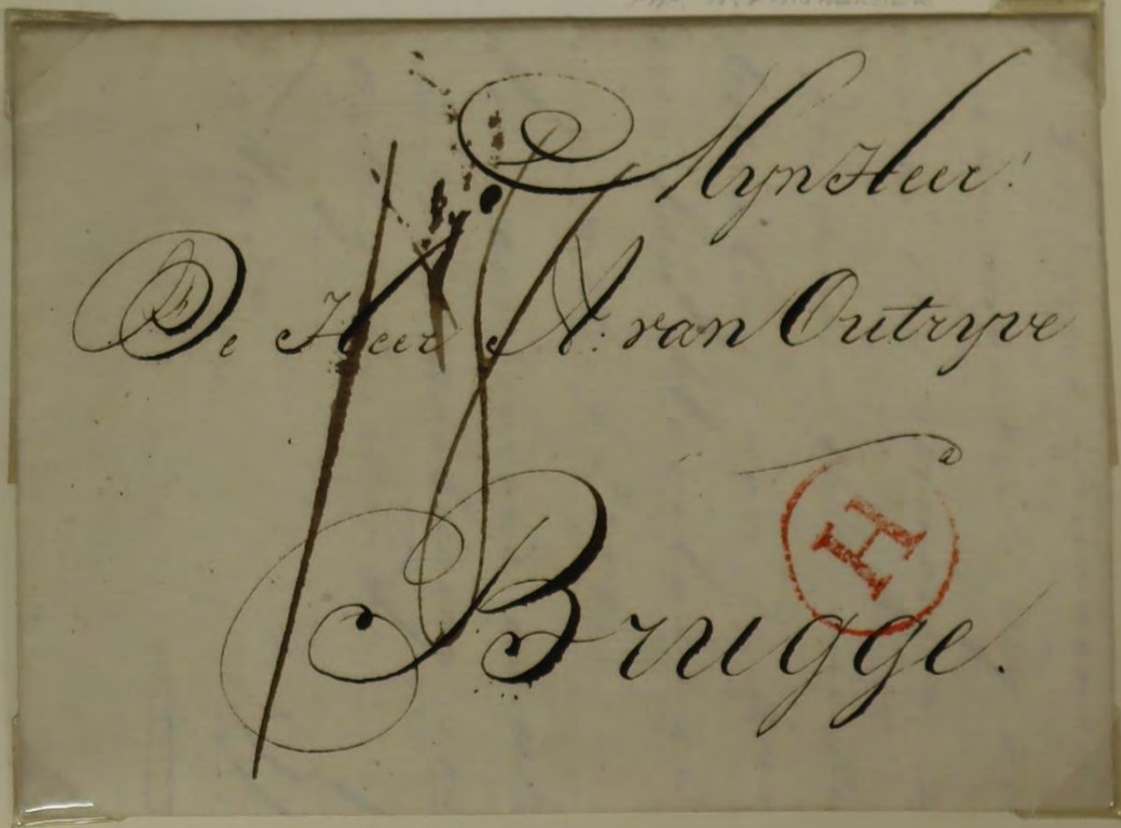 Myn Heer.
De Heer N: van Outryve
a
Brugge.
H
18